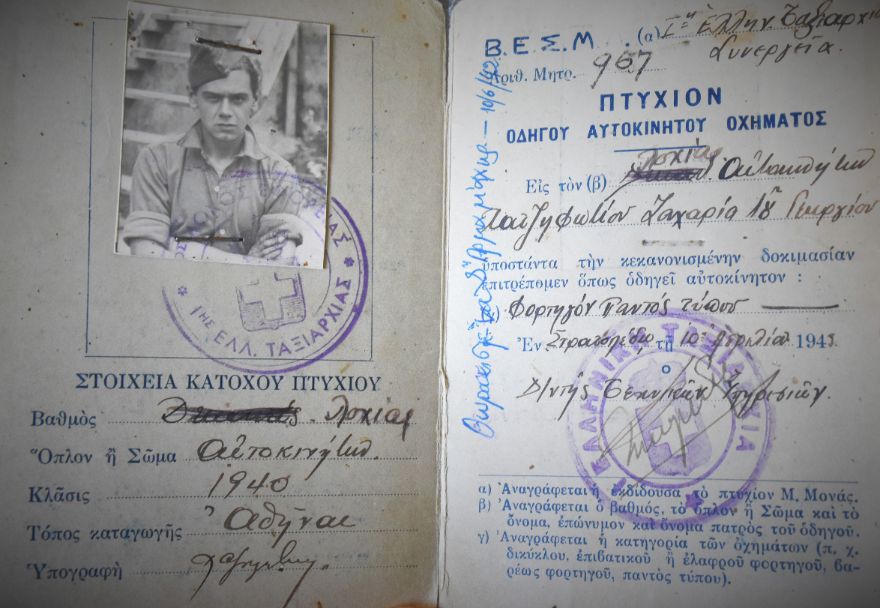 ΣΤΟΙΧΕΙΑ ΚΑΤΟΧΟΥ ΠΤΥΧΙΟΥ
Βαθμὸς Λοχίας
Ὅπλον ἢ Σῶμα Αὐτοκινήτων
Κλᾶσις 1940
Τόπος καταγωγῆς Ἀθῆναι
Ὑπογραφὴ
1ΗΣ ΕΛΛ. ΤΑΞΙΑΡΧΙΑΣ
Β.Ε.Σ.Μ. (α) Ιη Ἑλλην Ταξιαρχία
Συνεργεῖα.
Ἀριθ. Μητρ. 967
ΠΤΥΧΙΟΝ
ΟΔΗΓΟΥ ΑΥΤΟΚΙΝΗΤΟΥ ΟΧΗΜΑΤΟΣ
Εἰς τὸν (β) Λοχίαν Αὐτοκινήτων
Χατζηφωτίου Ζαχαρία τοῦ Γεωργίου
ὑποστάντα τὴν κεκανονισμένην δοκιμασίαν
ἐπιτρέπομεν ὅπως ὁδηγεῖ αὐτοκίνητον :
Φορτηγὸν Παντὸς τύπου
Ἐν Στρατοπέδῳ τῇ 10 Ἀπριλίου 194
Ο
Δ/ντὴς Τεχνικῶν Ὑπηρεσιῶν
ΕΛΛΗΝΙΚΗ ΤΑΞΙΑΡΧΙΑ
α) Ἀναγράφεται ἡ ἐκδίδουσα τὸ πτυχίον Μ. Μονάς.
β) Ἀναγράφεται ὁ βαθμός, τὸ ὅπλον ἢ Σῶμα καὶ τὸ
ὄνομα, ἐπώνυμον καὶ ὄνομα πατρὸς τοῦ ὁδηγοῦ.
γ) Ἀναγράφεται ἡ κατηγορία τῶν ὀχημάτων (π. χ.
δικύκλου, ἐπιβατικοῦ ἢ ἐλαφροῦ φορτηγοῦ, βα-
ρέως φορτηγοῦ, παντὸς τύπου).
10/6/42